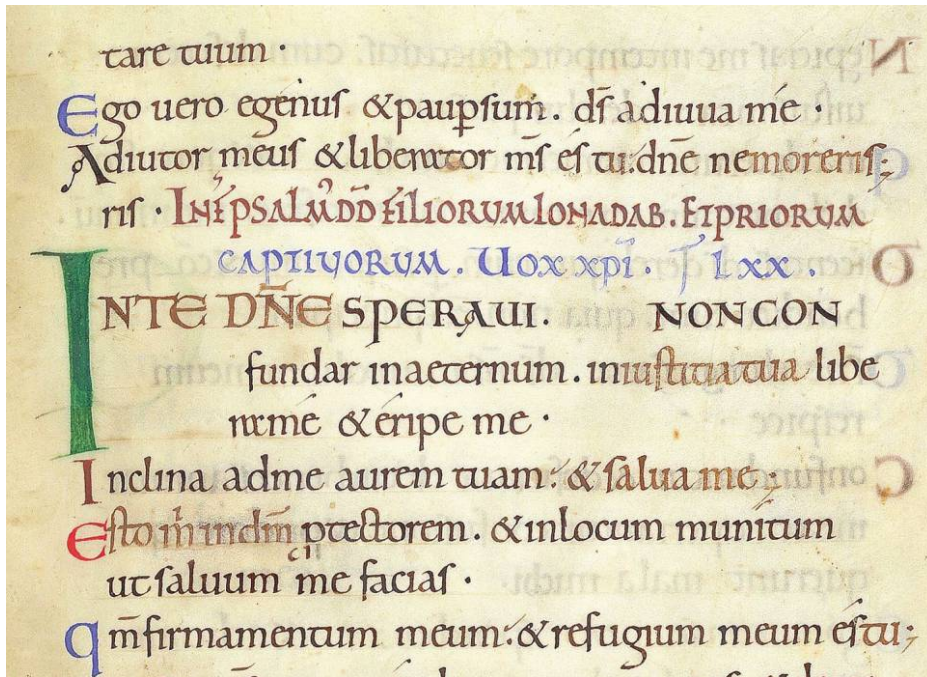 tare tuum ·
Ego uero egenus & paup̱ sum̄. d̄s adiuua me ·
Adiutor meus & liberator m̄s es tu. dn̄e ne moreris;
ris · IN FĪ PSALM̄ DD FILIORUM IONADAB. ET PRIORUM
CAPTIUORUM. Uox xp̄i. lxx .
INTE DN̄E SPERAUI. NONCON
fundar inaeternum. iniustitia tua libe
ra me & eripe me ·
Inclina adme aurem tuam: & salua me;
Esto m̄ indm̄ p̱tectorem. & inlocum munitum
ut saluum me facias ·
qm̄ firmamentum meum: & refugium meum es tu;